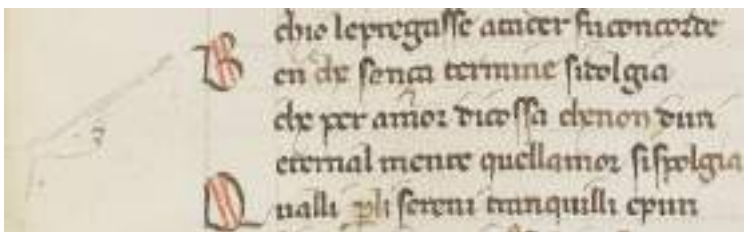 chio lepregasse atacer fuconcorde
Ben che senca termine sidolgia
che per amor dicossa chenon duri
eternal mente quellamor sispolgia
Qualli pli sereni tranquilli epuri